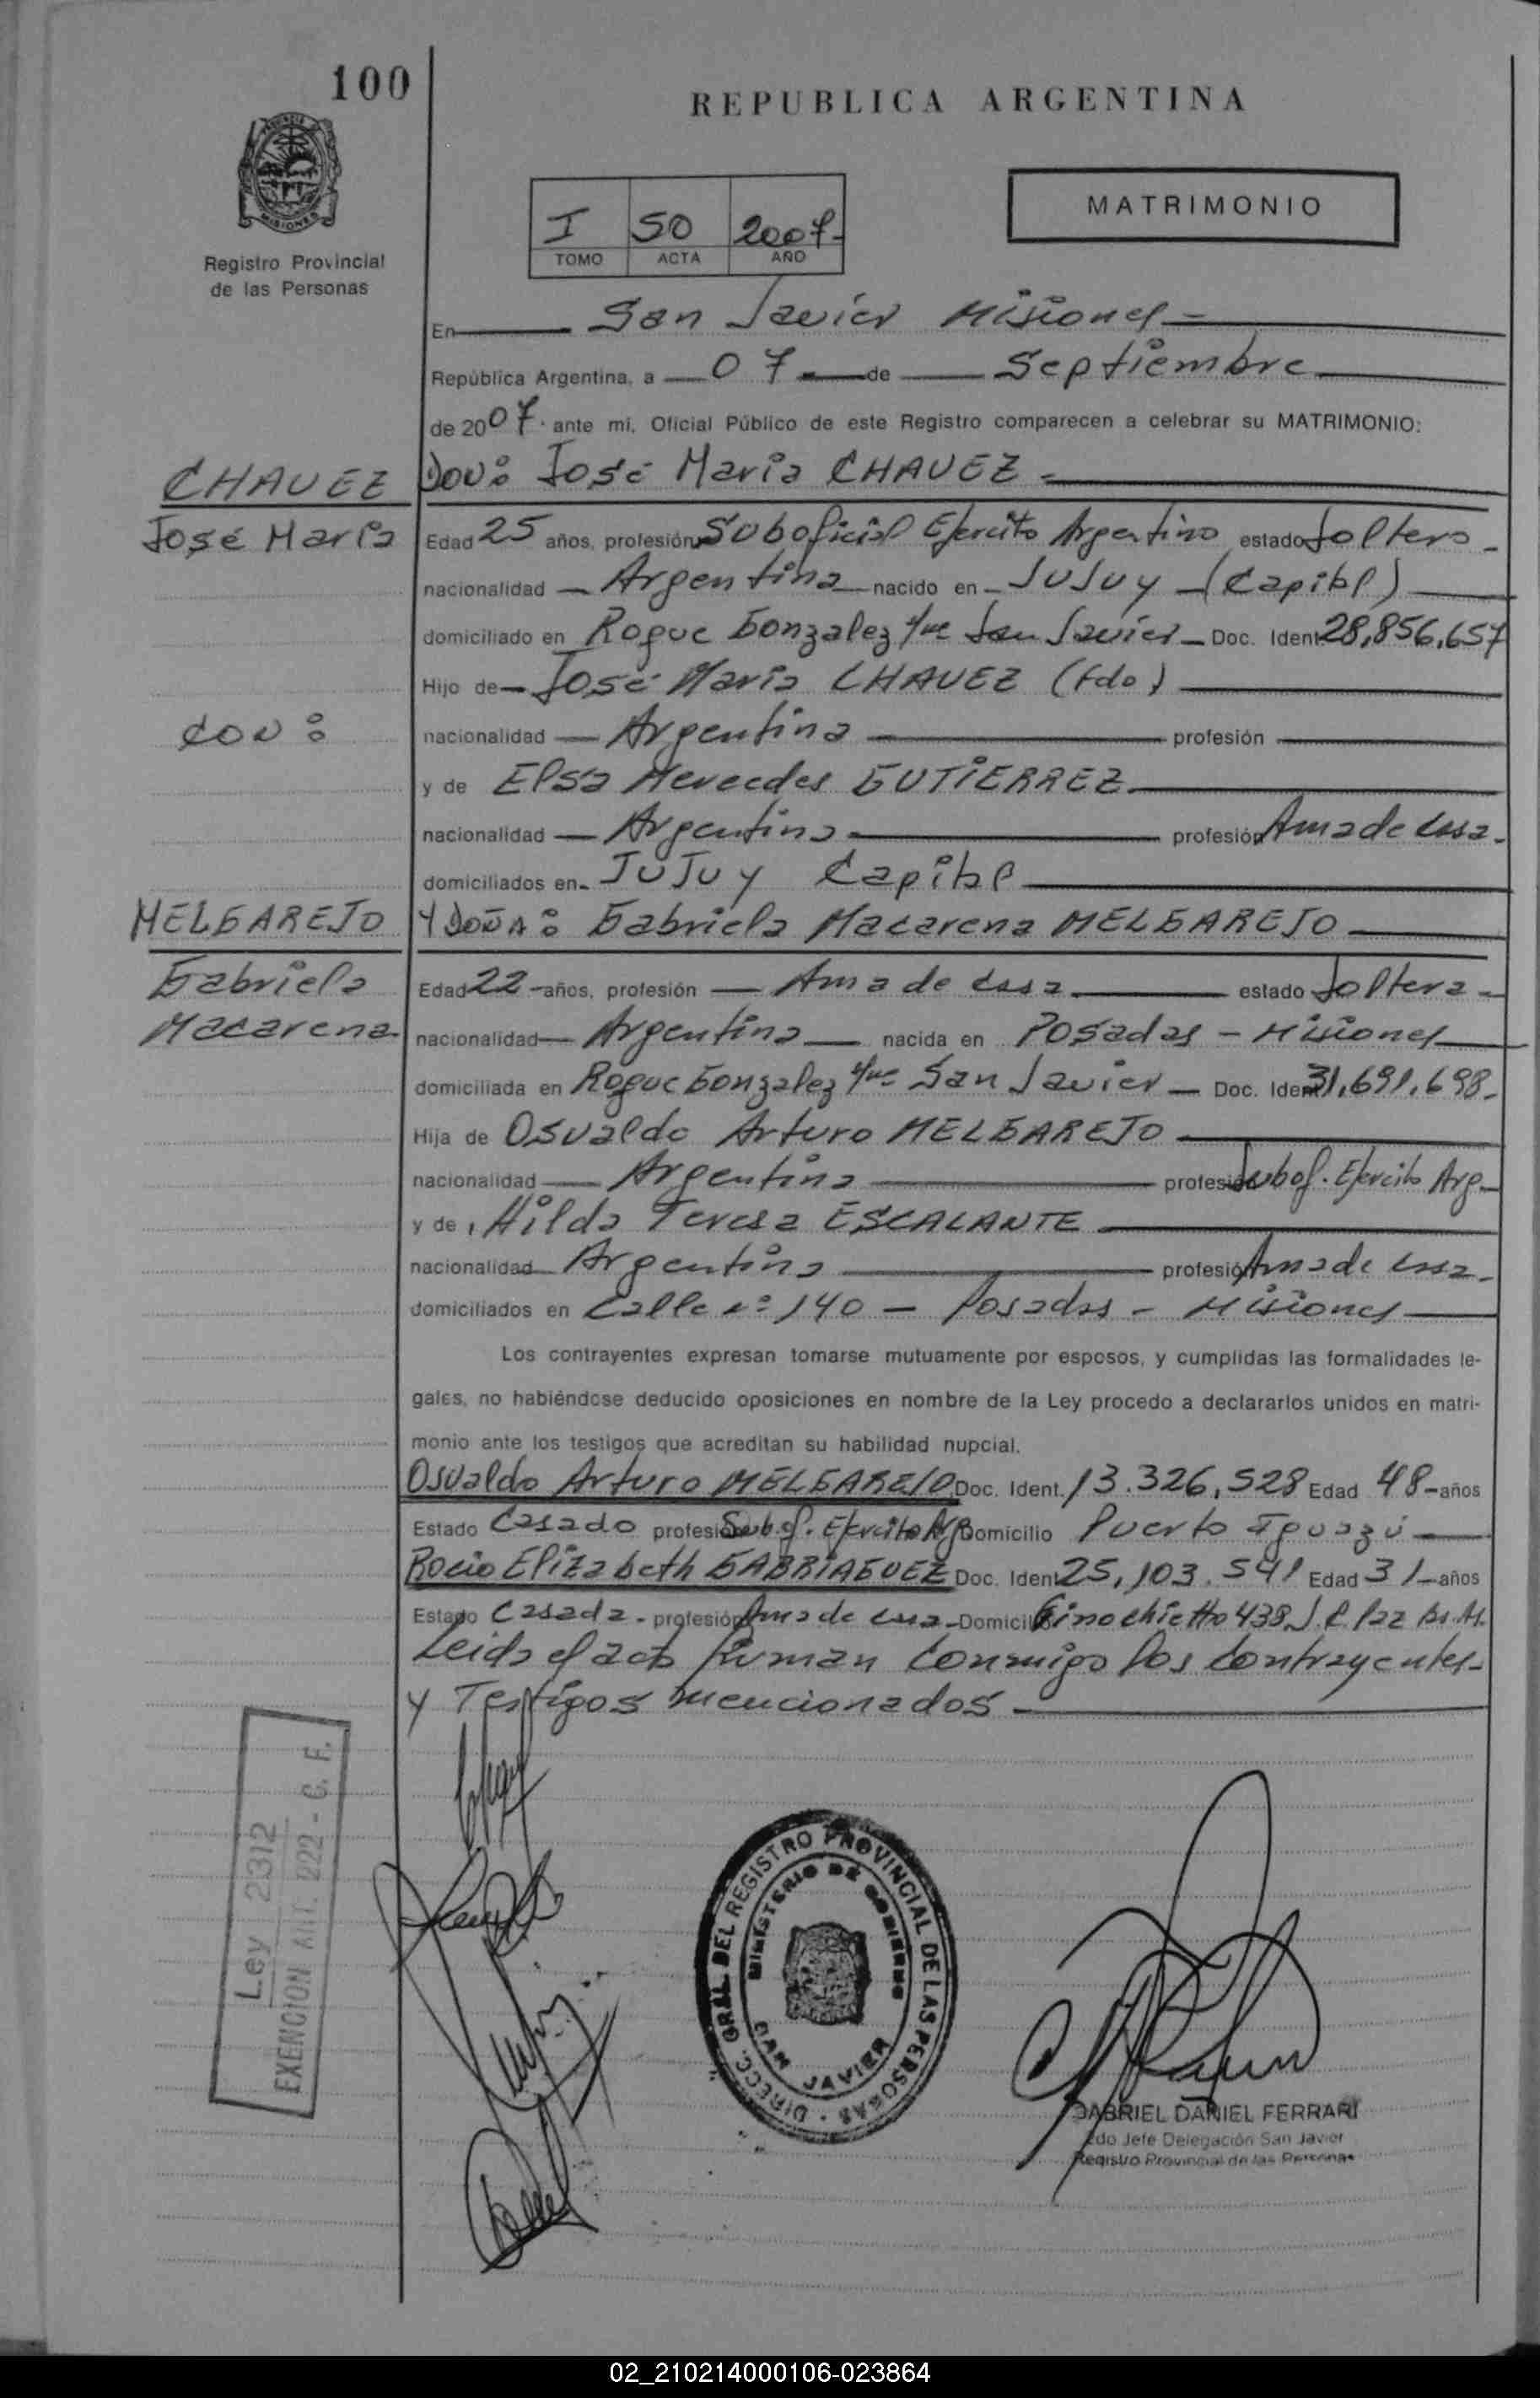 100
REPUBLICA ARGENTINA
MISIONES
Registro Provincial
de las Personas
I 50 2007-
TOMO ACTA AÑO
MATRIMONIO
En San Javier Misiones
República Argentina, a 07 de Septiembre
de 2007 ante mi, Oficial Público de este Registro comparecen a celebrar su MATRIMONIO:
CHAVEZ
José María
DON: José María CHAVEZ
Edad 25 años, profesión Suboficial Ejercito Argentino estado Soltero
nacionalidad Argentina nacido en JuJuy (Capital)
domiciliado en Roque Gonzalez San Javier Doc. Ident. 28,856,657
Hijo de José María CHAVEZ (fdo)
CON:
nacionalidad Argentina profesión
y de Elsa Mercedes GUTIERREZ
nacionalidad Argentina profesión Ama de casa
domiciliados en JuJuy Capital
MELGAREJO
Gabriela
Macarena
Y DOÑA: Gabriela Macarena MELGAREJO
Edad 22 años, profesión Ama de casa estado Soltera
nacionalidad Argentina nacida en Posadas - Misiones
domiciliada en Roque Gonzalez San Javier Doc. Ident. 31,691,698
Hija de Osvaldo Arturo MELGAREJO
nacionalidad Argentina profesión Subof. Ejercito Arg
y de Hilda Teresa ESCALANTE
nacionalidad Argentina profesión Ama de casa
domiciliados en Calle nº 140 - Posadas - Misiones
Los contrayentes expresan tomarse mutuamente por esposos, y cumplidas las formalidades le-
gales, no habiéndose deducido oposiciones en nombre de la Ley procedo a declararlos unidos en matri-
monio ante los testigos que acreditan su habilidad nupcial.
Osvaldo Arturo MELGAREJO Doc. Ident. 13.326,528 Edad 48 años
Estado Casado profesión Subof. Ejercito Arg Domicilio Puerto Iguazú
Rocio Elizabeth Doc. Ident. 25,103.541 Edad 31 años
Estado Casada profesión Ama de casa Domicilio Finochietto 438 J.C. Paz Bs. As.
Leida el acta firman conmigo los contrayentes
y Testigos mencionados
Ley 2312
EXENCION ART. 222 - C. F.
DIRECC. GRAL. DEL REGISTRO PROVINCIAL DE LAS PERSONAS
MINISTERIO DE GOBIERNO
SAN JAVIER
GABRIEL DANIEL FERRARI
2do Jefe Delegación San Javier
Registro Provincial de las Personas
02_210214000106-023864